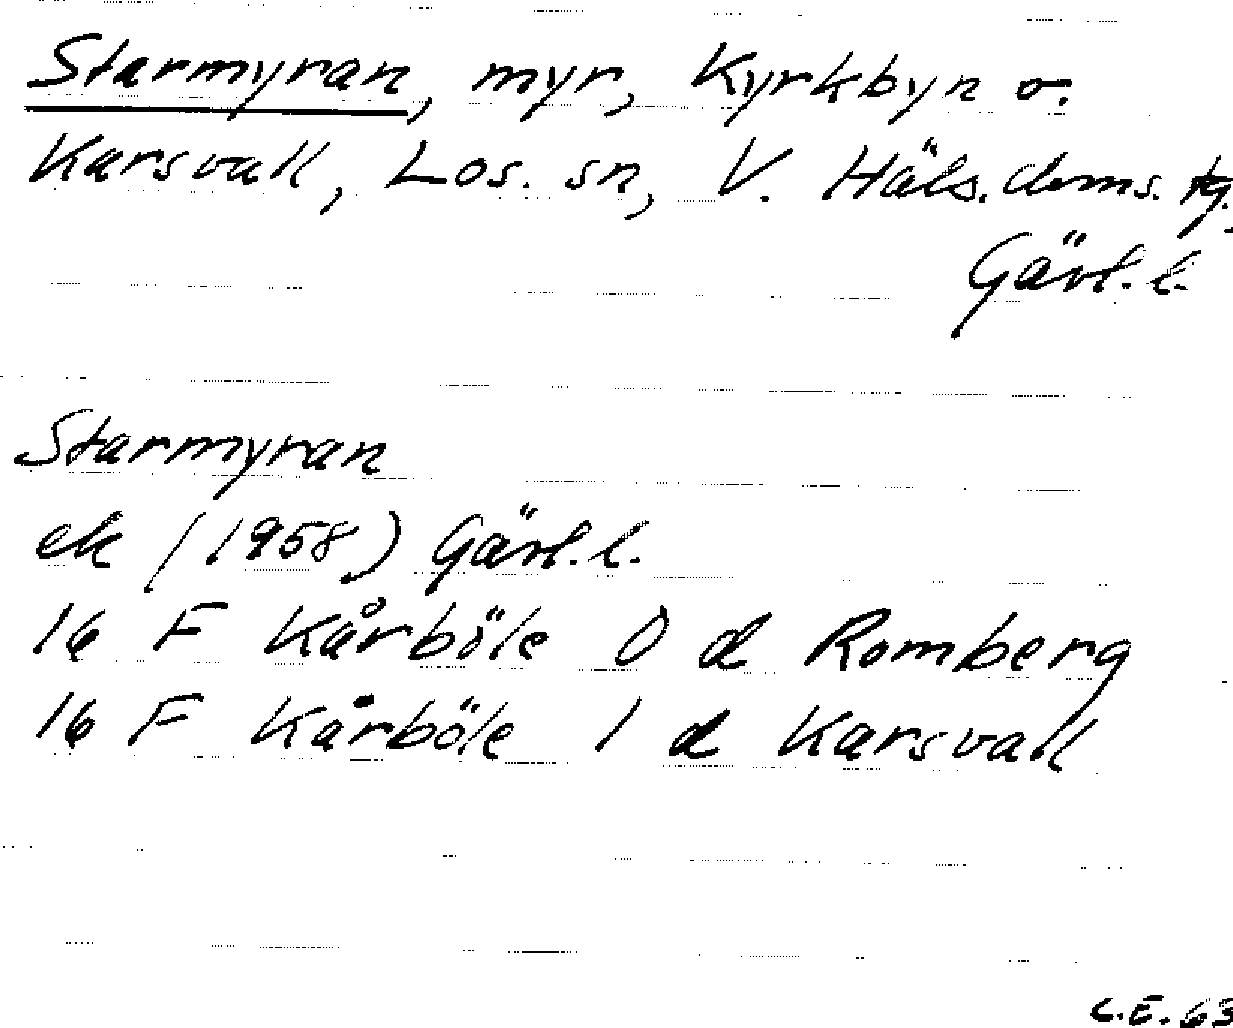 Starmyran, myr, Kyrkbyn o.
Karsvall, Los. sn, V. Häls. doms. tg.
Gävl. l.
Starmyran
ek (1958) Gävl. l.
16 F Kårböle 0 d Romberg
16 F Kårböle 1 d Karsvall
C.E. 63